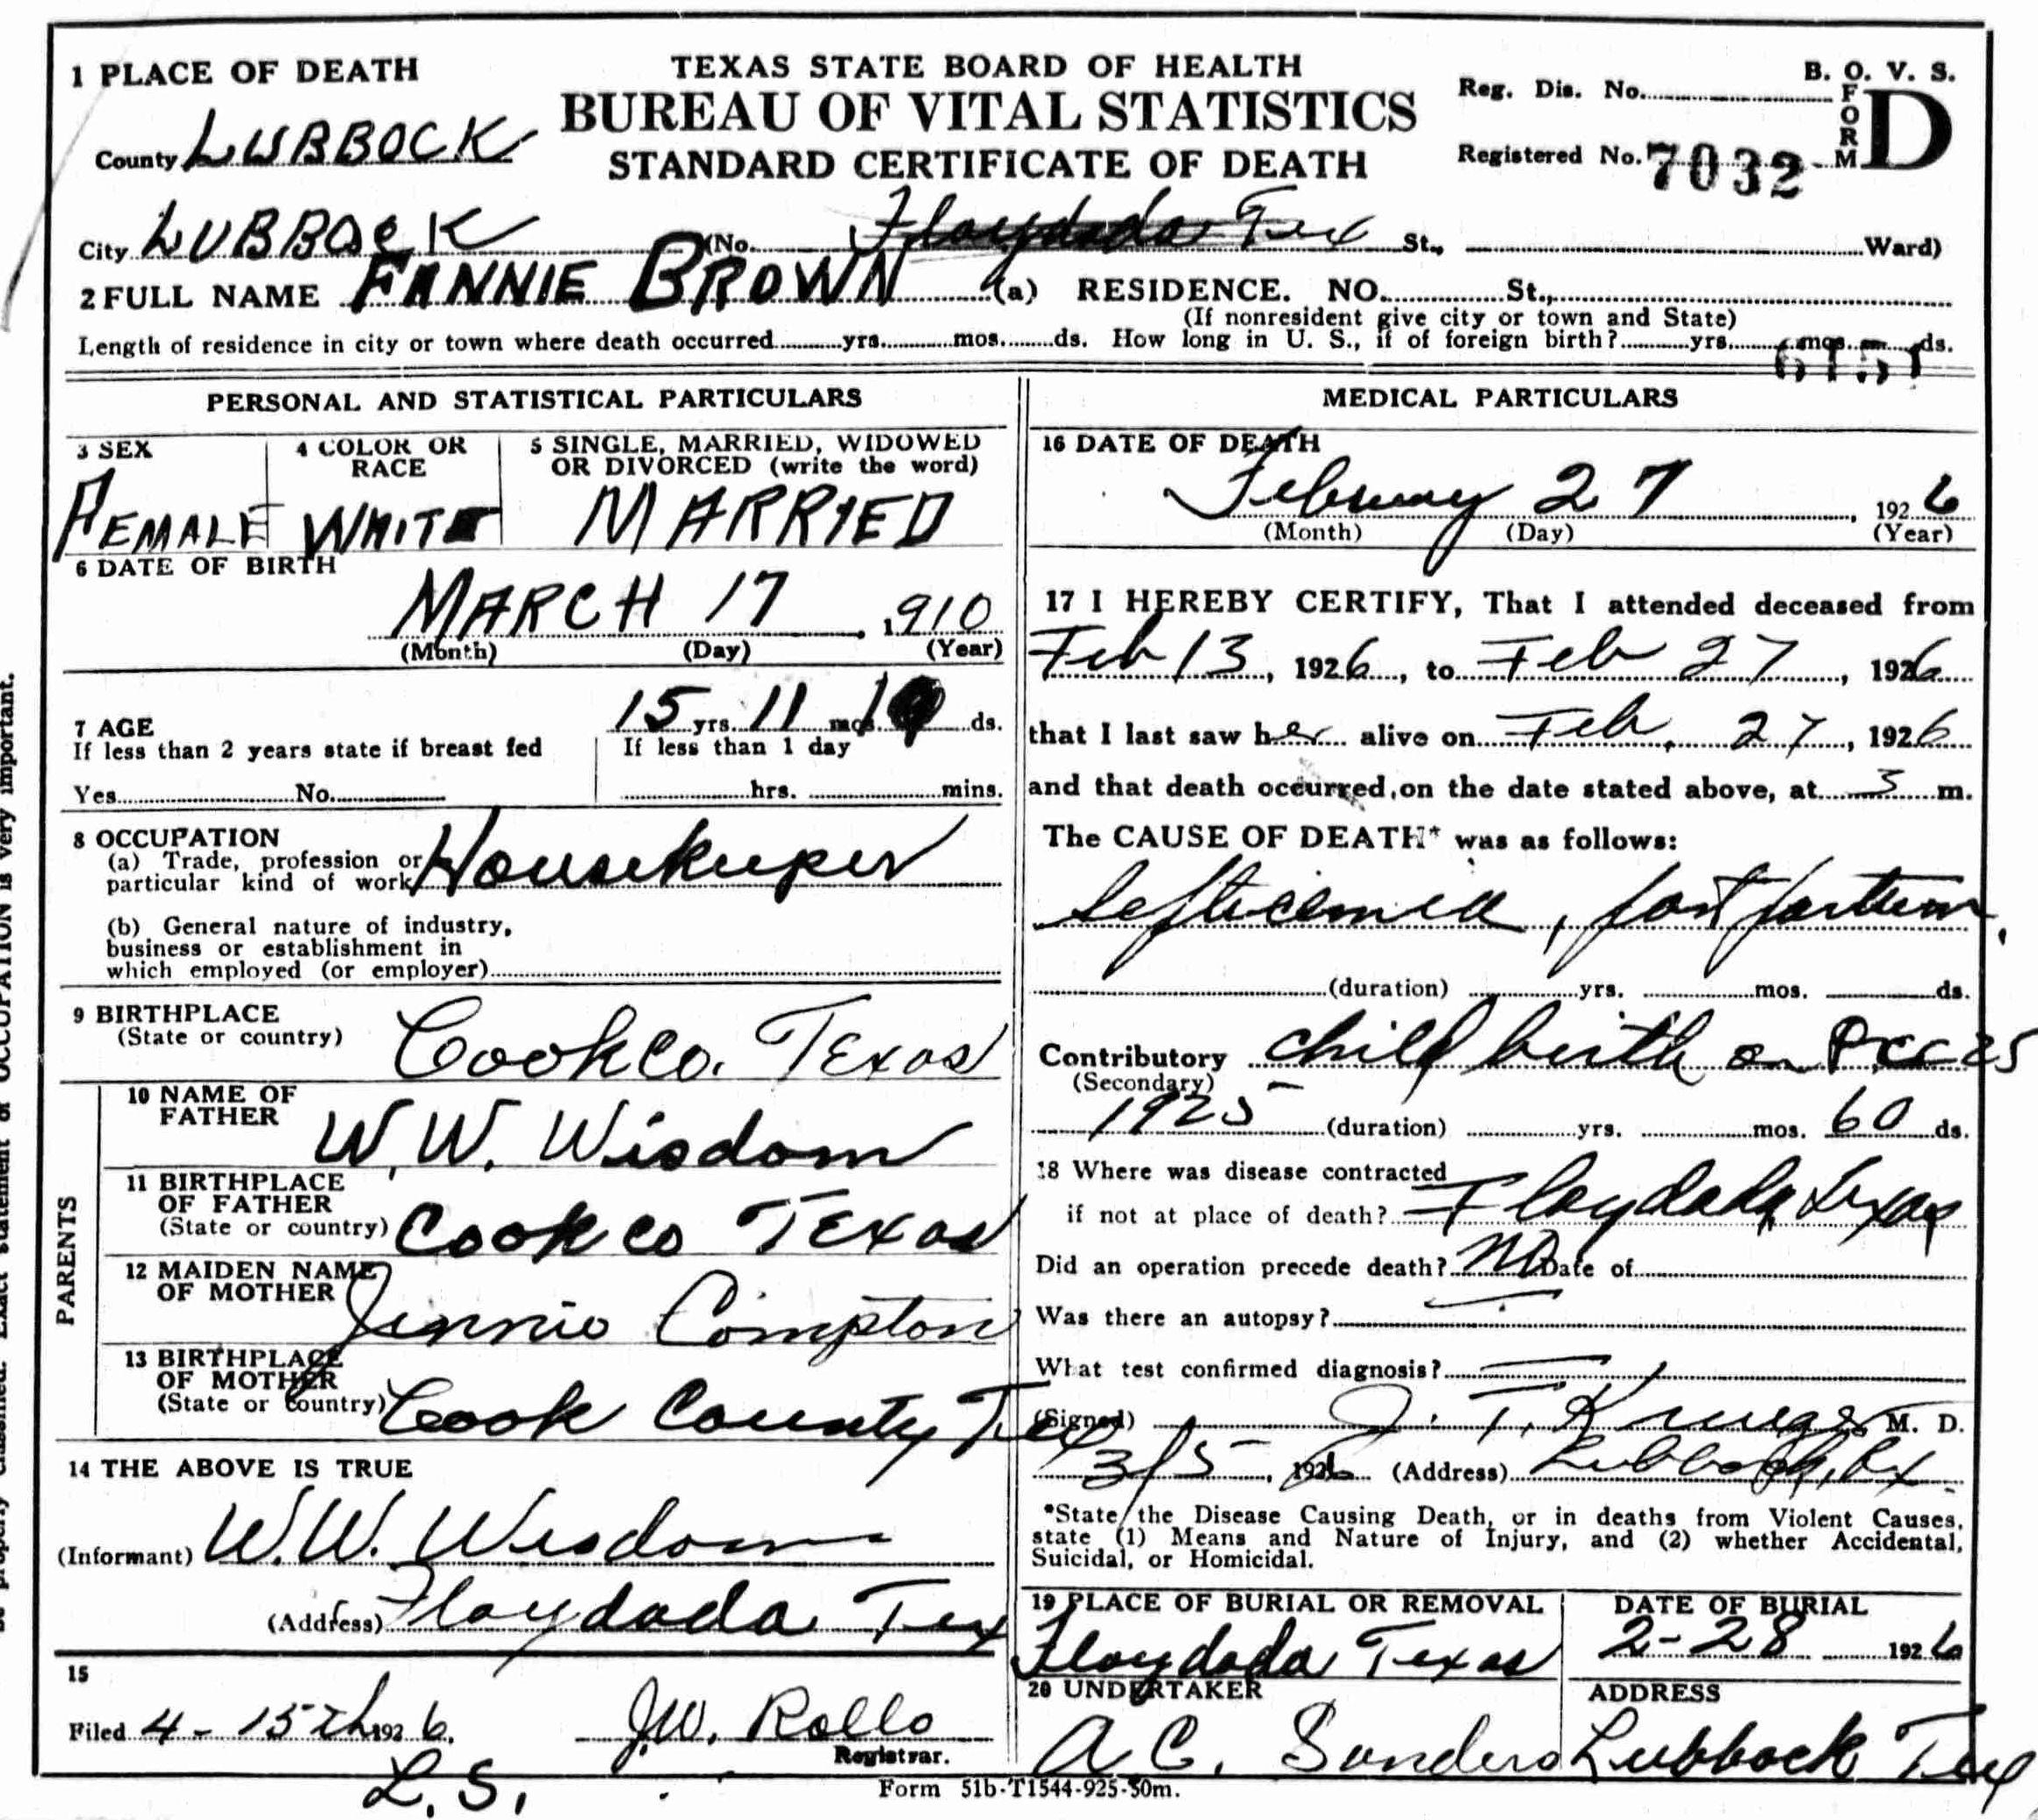 TEXAS STATE BOARD OF HEALTH
BUREAU OF VITAL STATISTICS
STANDARD CERTIFICATE OF DEATH
B. O. V. S.
FORM D
Reg. Dis. No.
Registered No. 7032
1 PLACE OF DEATH
County LUBBOCK
City LUBBOCK (No. Floydada Tex St., Ward)
2 FULL NAME FANNIE BROWN (a) RESIDENCE. NO. St.,
(If nonresident give city or town and State)
Length of residence in city or town where death occurred yrs. mos. ds. How long in U. S., if of foreign birth? yrs. mos. ds.
PERSONAL AND STATISTICAL PARTICULARS
3 SEX
FEMALE
4 COLOR OR RACE
WHITE
5 SINGLE, MARRIED, WIDOWED
OR DIVORCED (write the word)
MARRIED
6 DATE OF BIRTH
MARCH 17, 1910
(Month) (Day) (Year)
7 AGE
15 yrs. 11 mos. ds.
If less than 2 years state if breast fed
Yes No.
If less than 1 day
hrs. mins.
8 OCCUPATION
(a) Trade, profession or
particular kind of work Housekeeper
(b) General nature of industry,
business or establishment in
which employed (or employer)
9 BIRTHPLACE
(State or country) Cook co. Texas
PARENTS
10 NAME OF
FATHER W. W. Wisdom
11 BIRTHPLACE
OF FATHER
(State or country) Cook co Texas
12 MAIDEN NAME
OF MOTHER Jennie Compton
13 BIRTHPLACE
OF MOTHER
(State or country) Cook County Tex
14 THE ABOVE IS TRUE
(Informant) W. W. Wisdom
(Address) Floydada Tex
15
Filed 4 - 15th 1926.
J. W. Rollo
Registrar.
L. S.
MEDICAL PARTICULARS
16 DATE OF DEATH
February 27, 1926
(Month) (Day) (Year)
17 I HEREBY CERTIFY, That I attended deceased from
Feb 13, 1926, to Feb 27, 1926
that I last saw her alive on Feb. 27, 1926
and that death occurred, on the date stated above, at 3 m.
The CAUSE OF DEATH* was as follows:
Septicemia, post partum,
(duration) yrs. mos. ds.
Contributory child birth on Dec 25
(Secondary)
1925 (duration) yrs. mos. 60 ds.
18 Where was disease contracted
if not at place of death? Floydada, Texas
Did an operation precede death? No Date of
Was there an autopsy?
What test confirmed diagnosis?
(Signed) J. T. Krueger M. D.
3/5, 1926 (Address) Lubbock, Tex.
*State the Disease Causing Death, or in deaths from Violent Causes,
state (1) Means and Nature of Injury, and (2) whether Accidental,
Suicidal, or Homicidal.
19 PLACE OF BURIAL OR REMOVAL
Floydada Texas
DATE OF BURIAL
2-28 1926
20 UNDERTAKER
A. C. Sanders
ADDRESS
Lubbock Tex
Form 51b-T1544-925-50m.